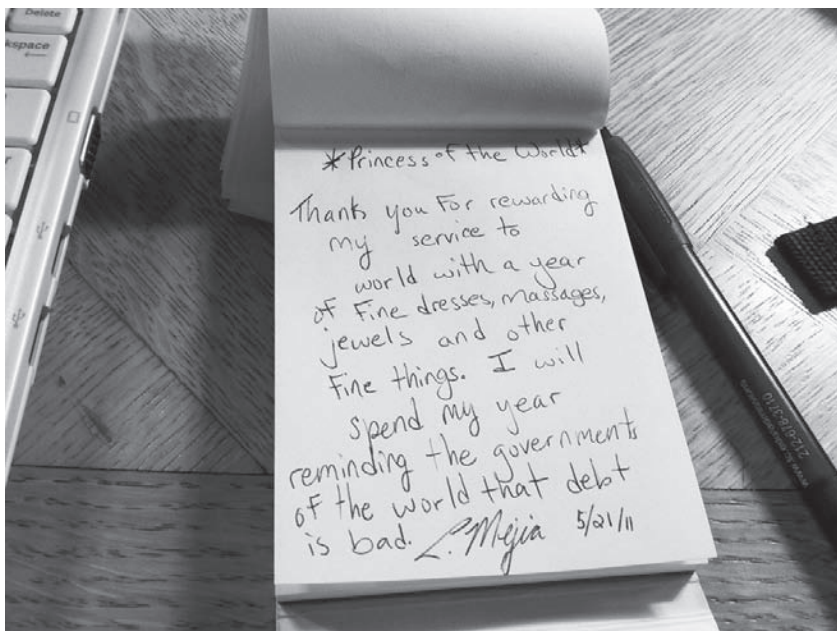 Delete
kspace
*Princess of the World*
Thank you For rewarding
my service to
world with a year
of Fine dresses, massages,
jewels and other
Fine things. I will
spend my year
reminding the governments
of the world that debt
is bad. L. Mejia 5/21/11
212-678-3710